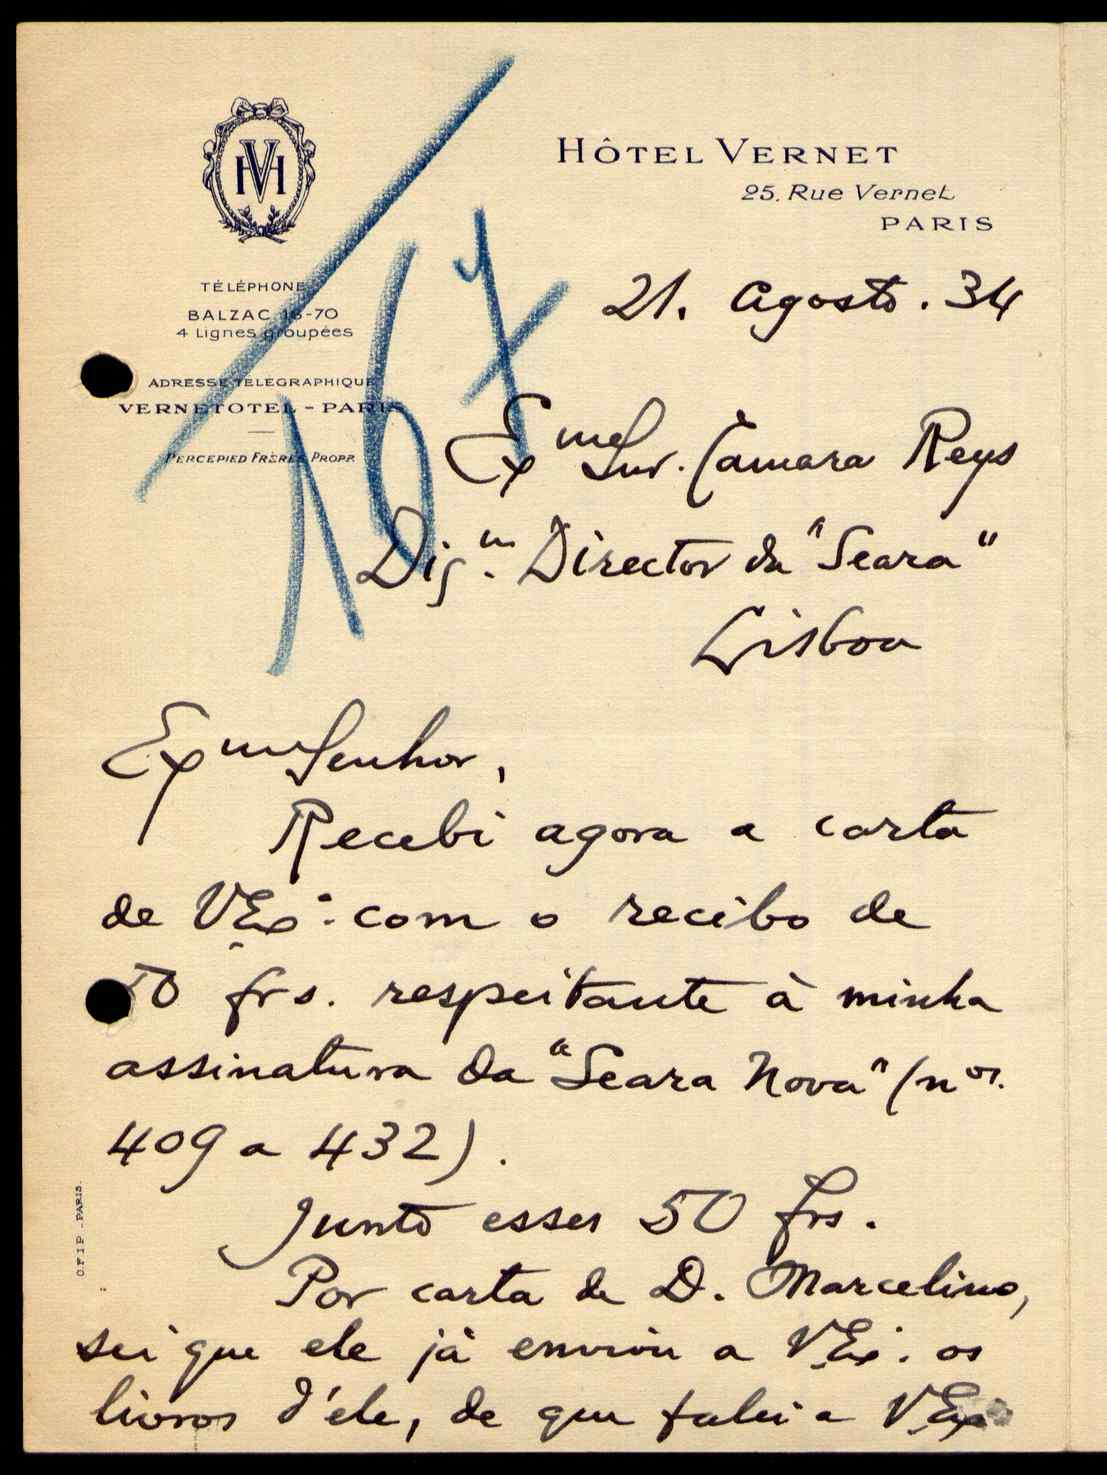 HÔTEL VERNET
25. Rue Vernet
PARIS
TÉLÉPHONE
BALZAC 16-70
4 Lignes groupées
ADRESSE TÉLÉGRAPHIQUE
VERNETOTEL - PARIS
PERCEPIED FRÈRES PROPR.
167
21. Agosto. 34
Exmo Snr. Camara Reys
Dig.mo Director da "Seara"
Lisboa
Exmo Senhor,
Recebi agora a carta
de V.Ex.ª com o recibo de
50 frs. respeitante à minha
assinatura da "Seara Nova" (nos.
409 a 432).
Junto esses 50 frs.
Por carta de D. Marcelino,
sei que ele já enviou a V.Ex. os
livros d'éle, de que falei a V.Ex
C.F.I.P. - PARIS.